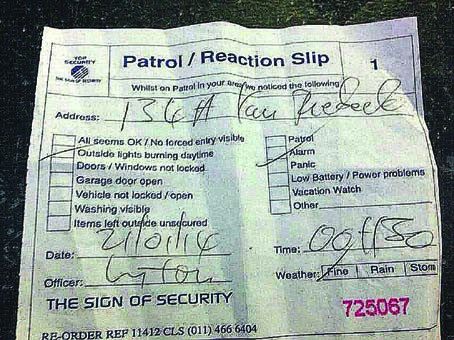 TOP
SECURITY
THE SIGN OF SECURITY
Patrol / Reaction Slip
1
Whilst on Patrol in your area we noticed the following
Address: 134A Van Riebeek
All seems OK / No forced entry visible
Outside lights burning daytime
Doors / Windows not locked
Garage door open
Vehicle not locked / open
Washing visible
Items left outside unsecured
Patrol
Alarm
Panic
Low Battery / Power problems
Vacation Watch
Other
Date: 21/01/14
Time: 00h50
Officer:
Weather: Fine Rain Storm
THE SIGN OF SECURITY
725067
RE-ORDER REF 11412 CLS (011) 466 6404